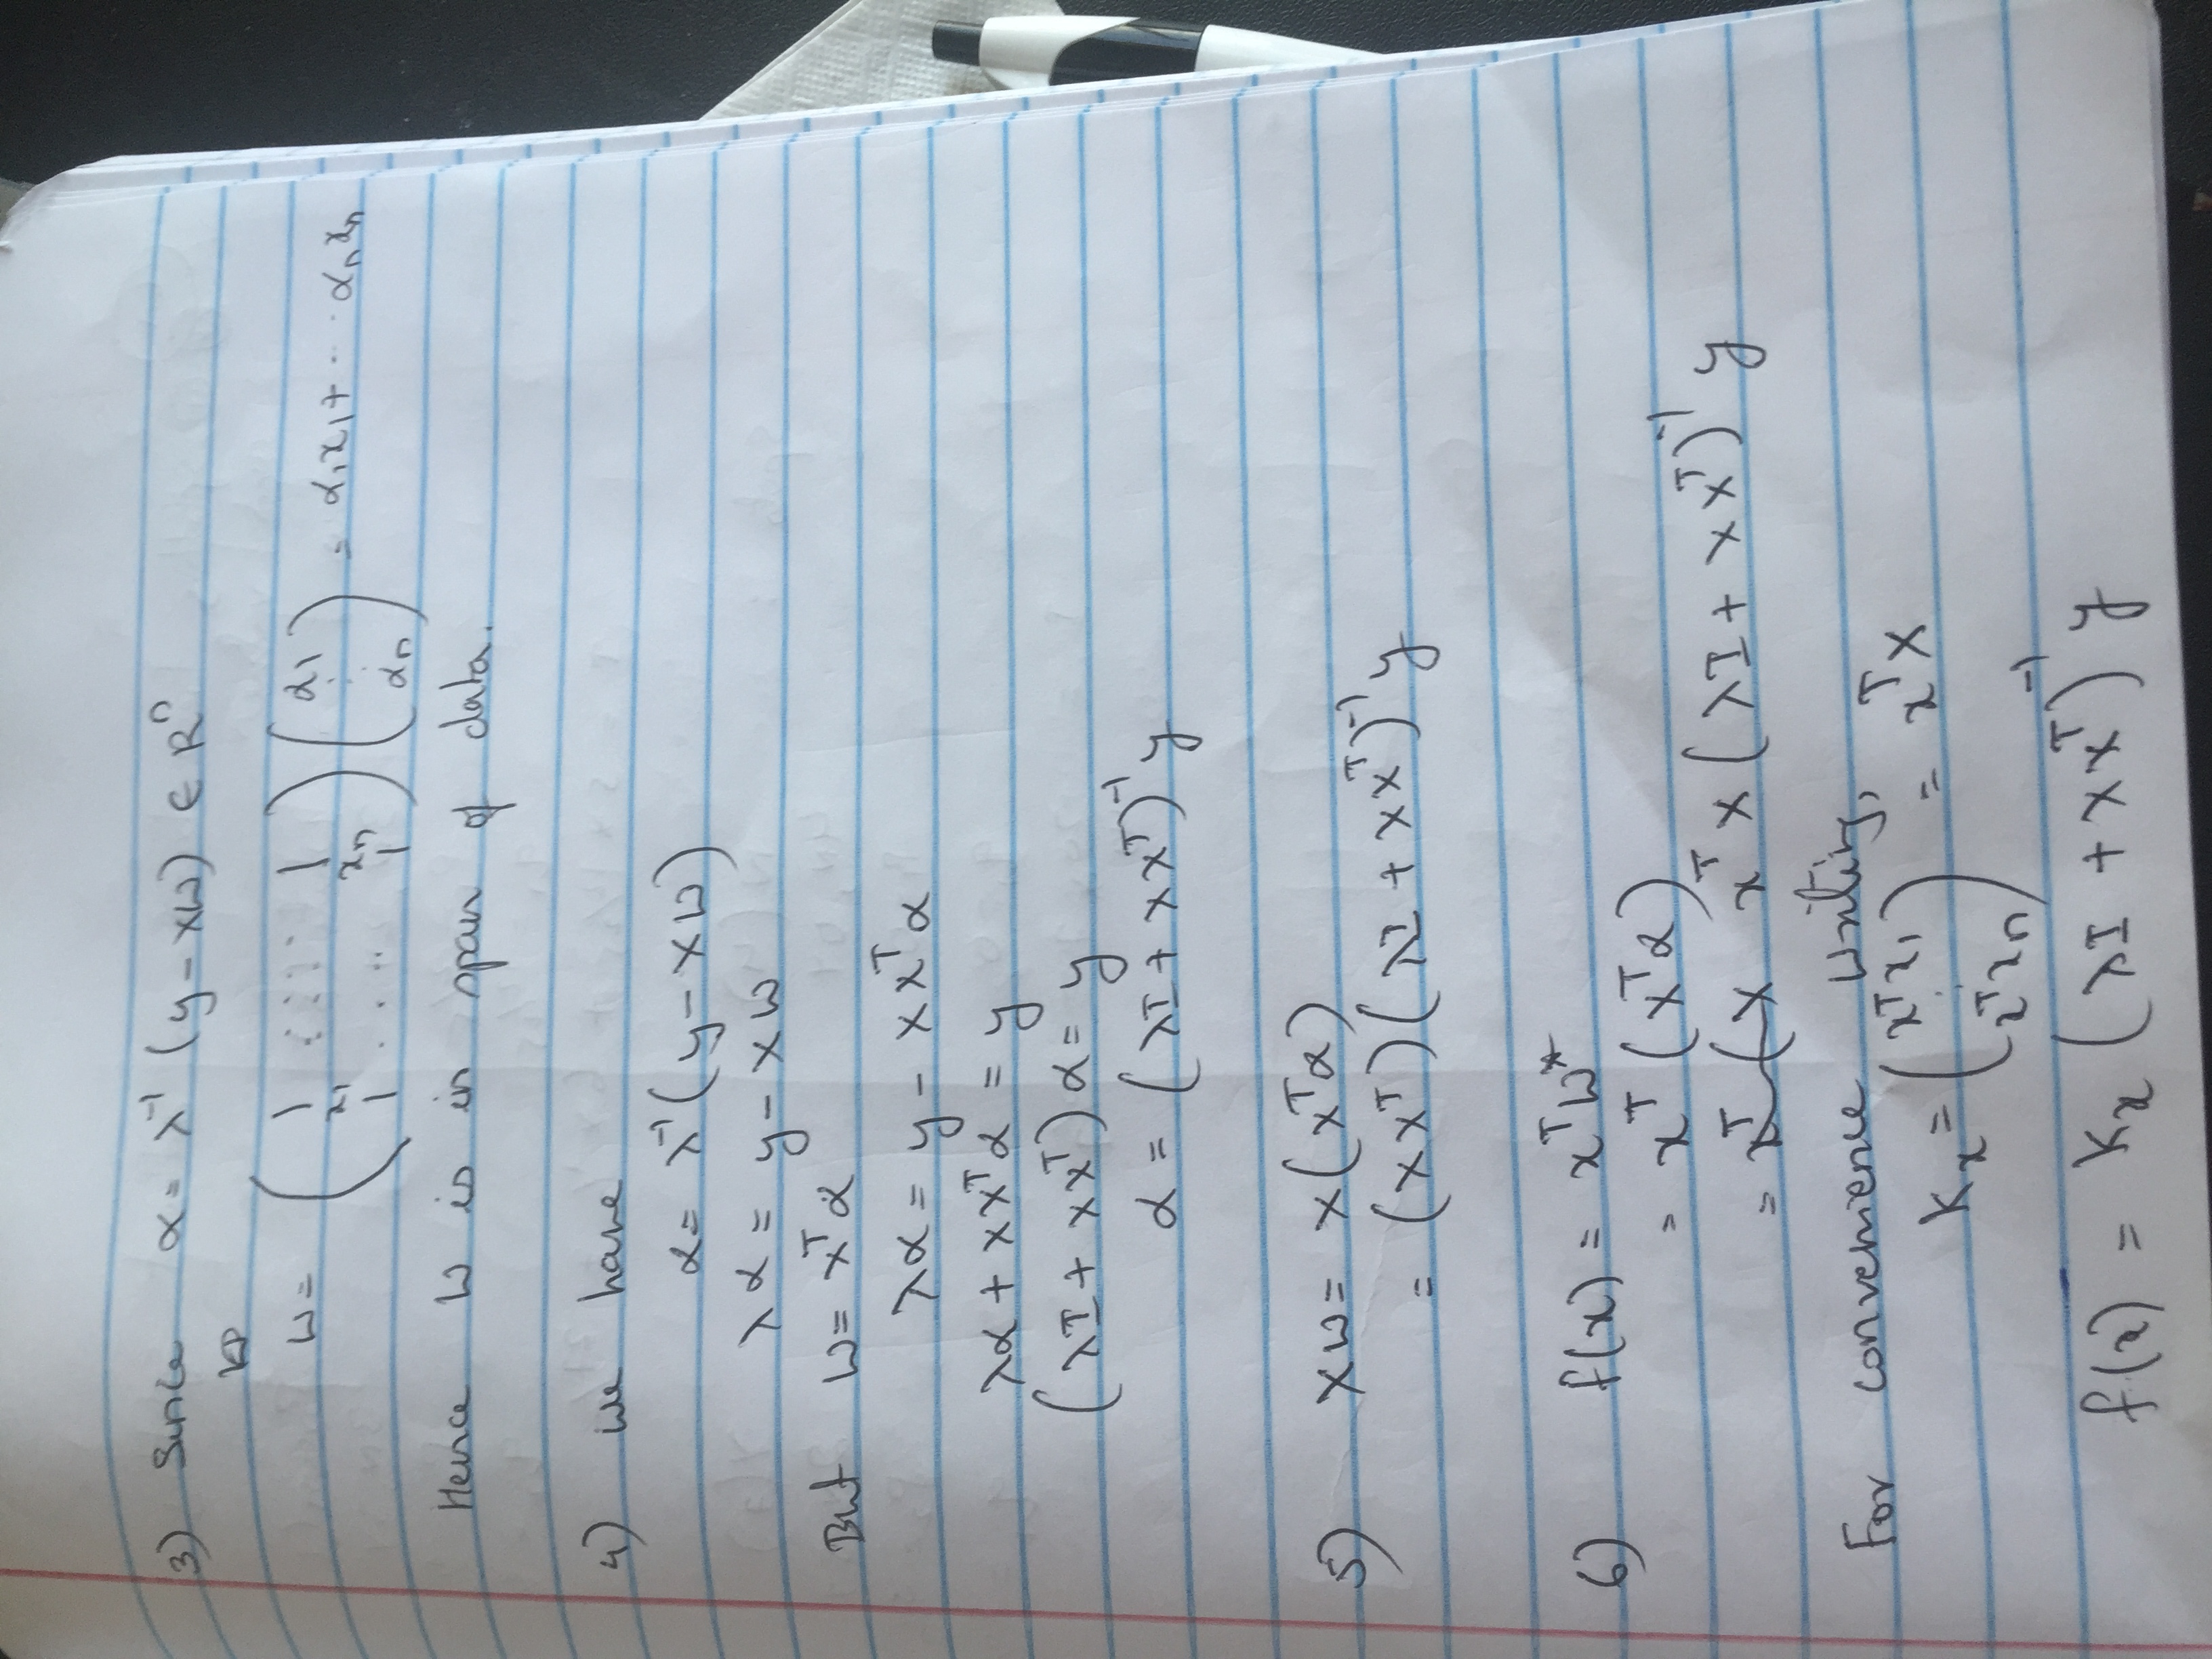 3) Since α = λ⁻¹ (y - Xω) ∈ Rⁿ
ω = ( | ⋮⋮⋮⋮ | ) ( α1 ) = α1x1 + ⋯ αn xn
x1 xn ⋮
| ‥‥ | αn
Hence ω is in span of data.
4) we have
α = λ⁻¹ (y - Xω)
λα = y - Xω
But ω = Xᵀα
λα = y - XXᵀα
λα + XXᵀα = y
(λI + XXᵀ) α = y
α = (λI + XXᵀ)⁻¹ y
5) Xω = X(Xᵀα)
= (XXᵀ)(λI + XXᵀ)⁻¹ y
6) f(x) = xᵀω*
= xᵀ (Xᵀα)
= xᵀ (X xᵀ X (λI + XXᵀ)⁻¹ y
For convenience writing,
Kx = ( xᵀx1 ⋮ xᵀxn ) = xᵀX
f(x) = Kx (λI + XXᵀ)⁻¹ y